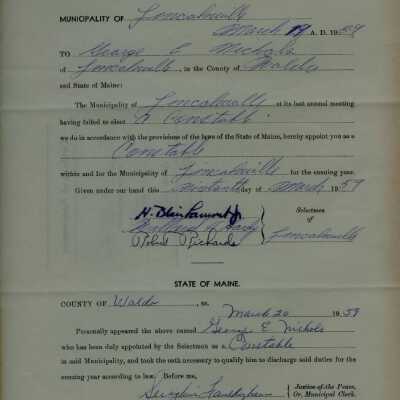 MUNICIPALITY OF Lincolnville
March 19 A. D. 1959
TO George E Nichols
of Lincolnville, in the County of Waldo
and State of Maine:
The Municipality of Lincolnville at its last annual meeting
having failed to elect A Constable
we do in accordance with the provisions of the laws of the State of Maine, hereby appoint you as a
Constable
within and for the Municipality of Lincolnville for the ensuing year.
Given under our hand this day of March 1959
H. Blair Jr.
Selectmen
of
Robert Richards
Lincolnville
STATE OF MAINE.
COUNTY OF Waldo, ss.
March 20 1959
Personally appeared the above named George E Nichols
who has been duly appointed by the Selectmen as a Constable
in said Municipality, and took the oath necessary to qualify him to discharge said duties for the
ensuing year according to law. Before me,
Justice of the Peace,
Or, Municipal Clerk.